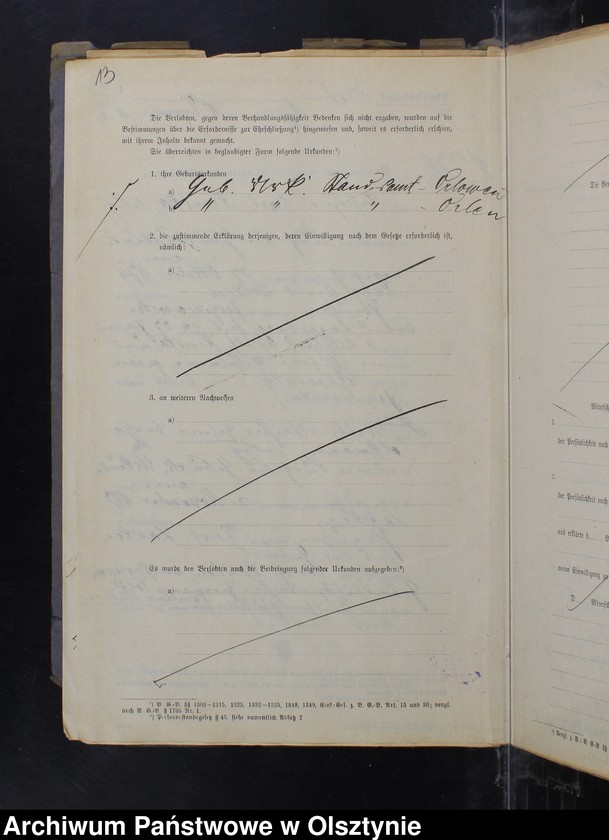 13
Die Verlobten, gegen deren Verhandlungsfähigkeit Bedenken sich nicht ergaben, wurden auf die
Bestimmungen über die Erfordernisse zur Eheschließung¹) hingewiesen und, soweit es erforderlich erschien,
mit ihrem Inhalte bekannt gemacht.
Sie überreichten in beglaubigter Form folgende Urkunden:²)
1. ihre Geburtsurkunden
a) Geb. Urk. Stand. Amt - Orlowen
b) " " " - Orlen
2. die zustimmende Erklärung derjenigen, deren Einwilligung nach dem Gesetze erforderlich ist,
nämlich:
a)
3. an weiteren Nachweisen
a)
Es wurde den Verlobten noch die Beibringung folgender Urkunden aufgegeben:²)
a)
¹) B. G.-B. §§ 1303—1315, 1325, 1332—1335, 1348, 1349, Einf.-Ges. z. B. G.-B. Art. 13 und 30; vergl.
auch B. G.-B. § 1795 Nr. 1.
²) Personenstandsgesetz § 45, siehe namentlich Absatz 2
Die Be
Mitersch
1.
der Persönlichkeit nach
2.
der Persönlichkeit nach
und erklärte d
meine Einwilligung zu
D. Mitersch
¹) Vergl.
Archiwum Państwowe w Olsztynie